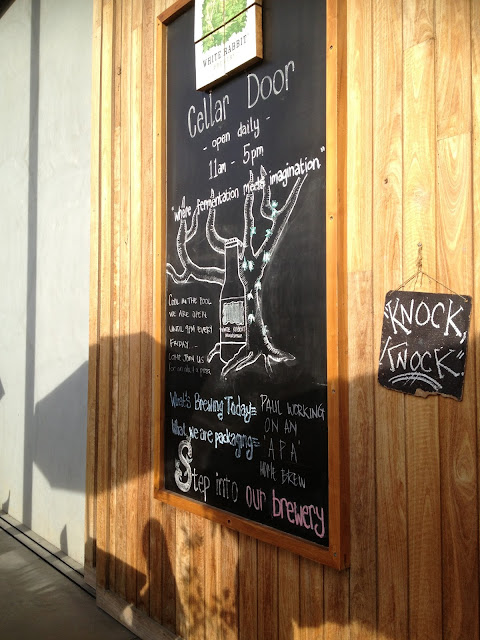 WHITE RABBIT
Cellar Door
- open daily -
11am - 5pm
"where fermentation meets imagination."
WE ARE OPEN
UNTIL 9PM EVERY
FRIDAY -
COME JOIN US
WHITE RABBIT
What's Brewing Today = PAUL WORKING
ON AN
What we are packaging = 'APA'
HOME BREW
Step into our brewery
"KNOCK,
KNOCK"